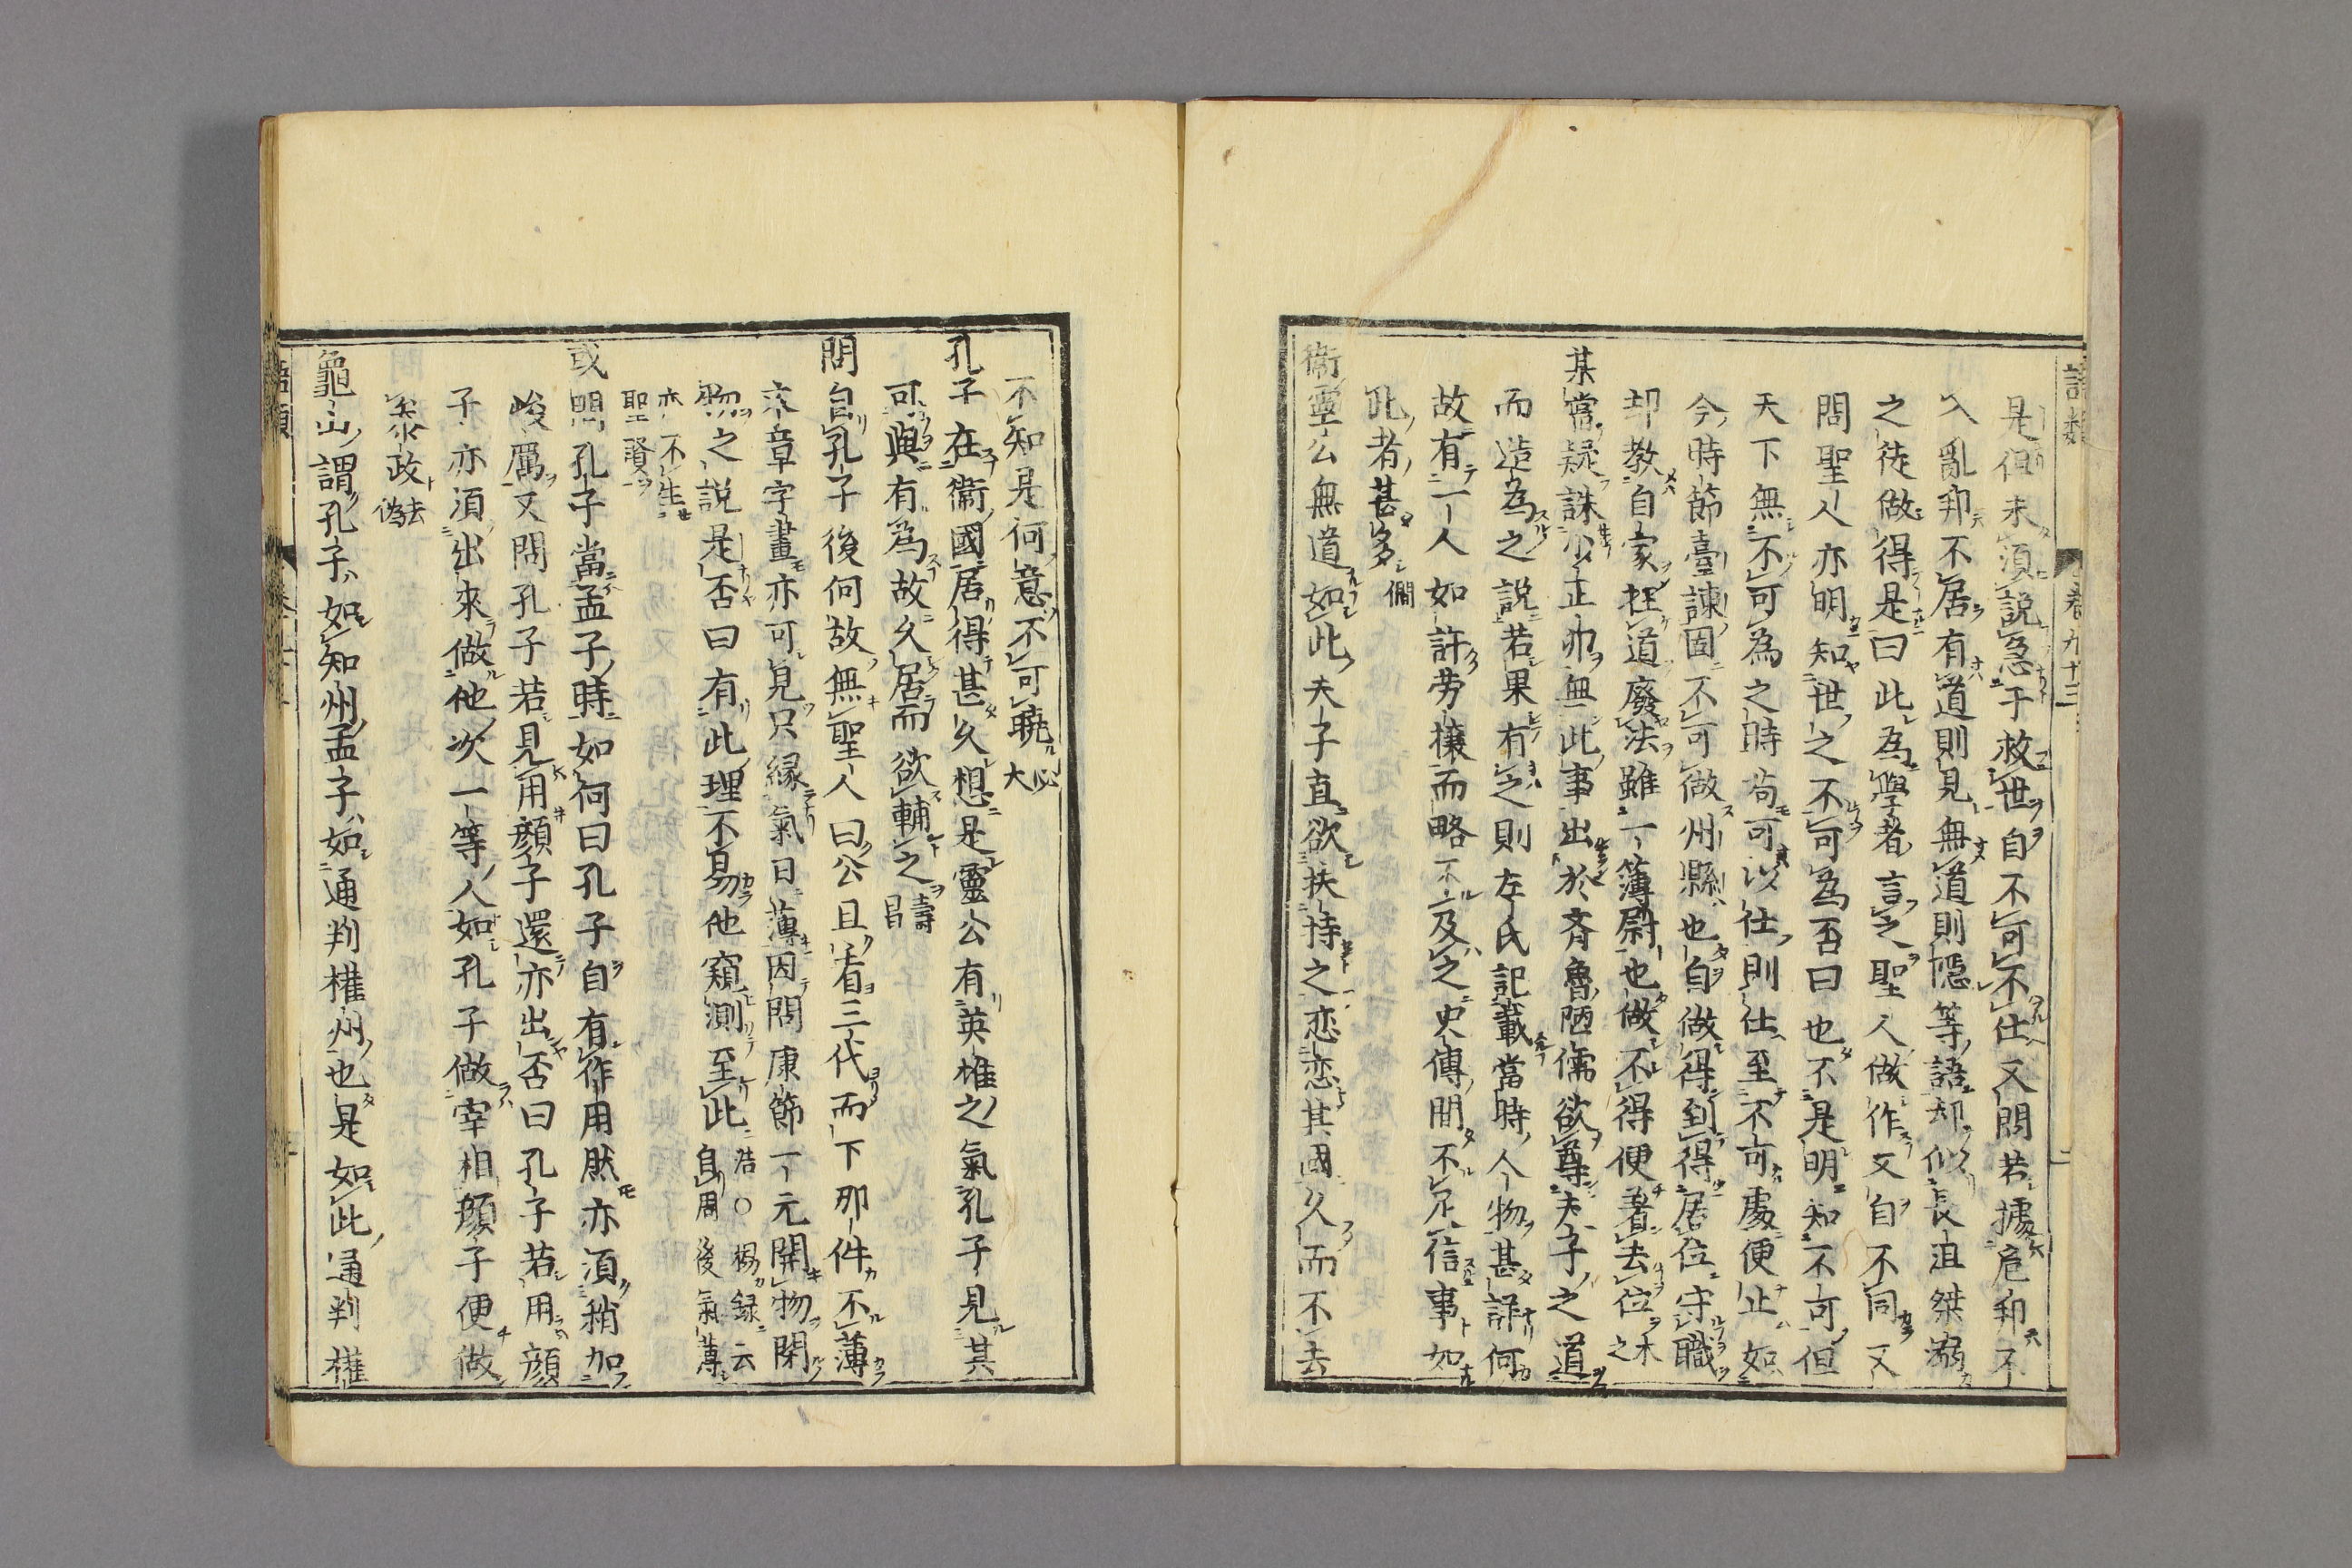 語類 卷九十三 二
是但未須説急于救世自不可不仕又問若據危邦不
入亂邦不居有道則見無道則隱等語却似長沮桀溺
之徒做得是曰此為學者言之聖人做作又自不同又
問聖人亦明知世之不可為否曰也不是明知不可但
天下無不可為之時苟可以仕則仕至不可處便止如
今時節臺諫固不可做州縣也自做得到得居位守職
却教自家枉道廢法雖一簿尉也做不得便著去位木之
某嘗疑誅少正卯無此事出於齊魯陋儒欲尊夫子之道
而造為之説若果有之則左氏記載當時人物甚詳何
故有一人如許勞攘而略不及之史傳間不足信事如
此者甚多僩
衞靈公無道如此夫子直欲扶持之恋恋其國久而不去
不知是何意不可曉必大
孔子在衞國居得甚久想是靈公有英雄之氣孔子見其
可與有為故久居而欲輔之壽昌
問自孔子後何故無聖人曰公且看三代而下那件不薄
文章字畫亦可見只緣氣日薄因問康節一元開物閉
物之説是否曰有此理不易他窺測至此浩○楊録云自周後氣薄
亦不生聖賢
或問孔子當孟子時如何曰孔子自有作用然亦須稍加
峻厲又問孔子若見用顏子還亦出否曰孔子若用顏
子亦須出來做他次一等人如孔子做宰相顏子便做
叅政去偽
龜山謂孔子如知州孟子如通判權州也是如此通判權
語類